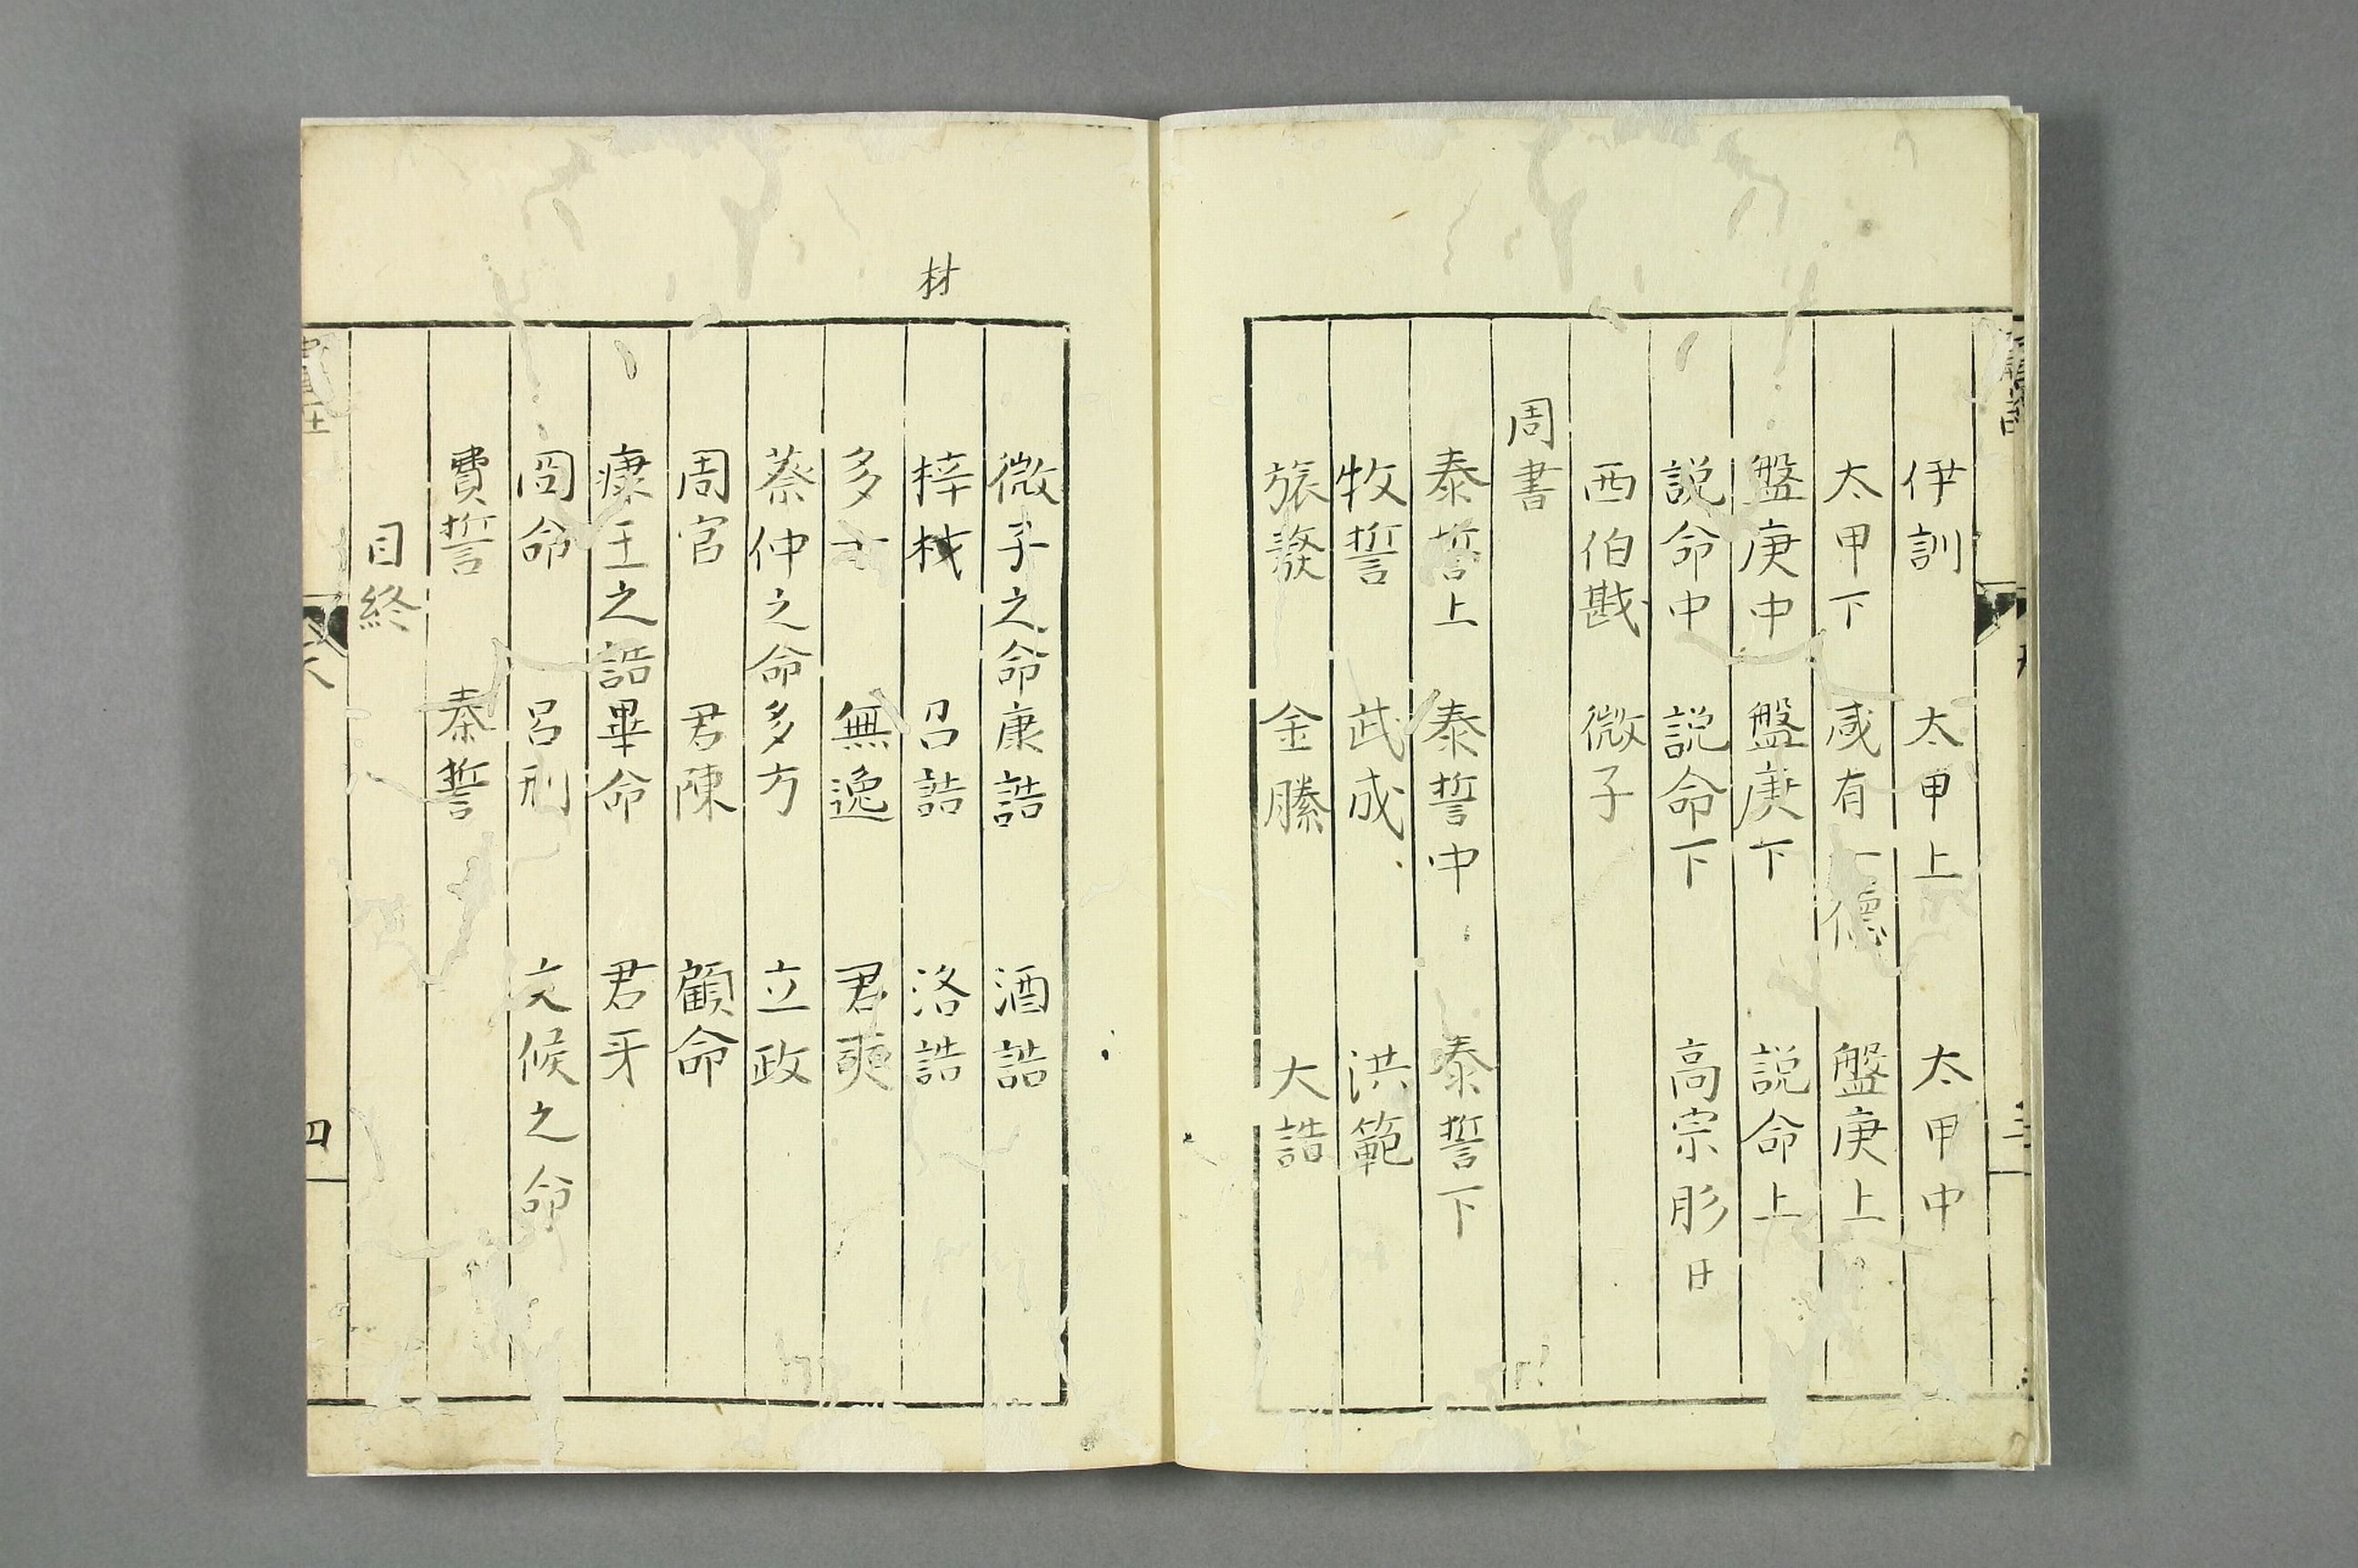 伊訓 太甲上 太甲中
太甲下 咸有一德 盤庚上
盤庚中 盤庚下 說命上
說命中 說命下 高宗肜日
西伯戡 微子
周書
泰誓上 泰誓中 泰誓下
牧誓 武成 洪範
旅獒 金縢 大誥
材
微子之命 康誥 酒誥
梓材 召誥 洛誥
多士 無逸 君奭
蔡仲之命 多方 立政
周官 君陳 顧命
康王之誥 畢命 君牙
冏命 呂刑 文候之命
費誓 秦誓
目終
四